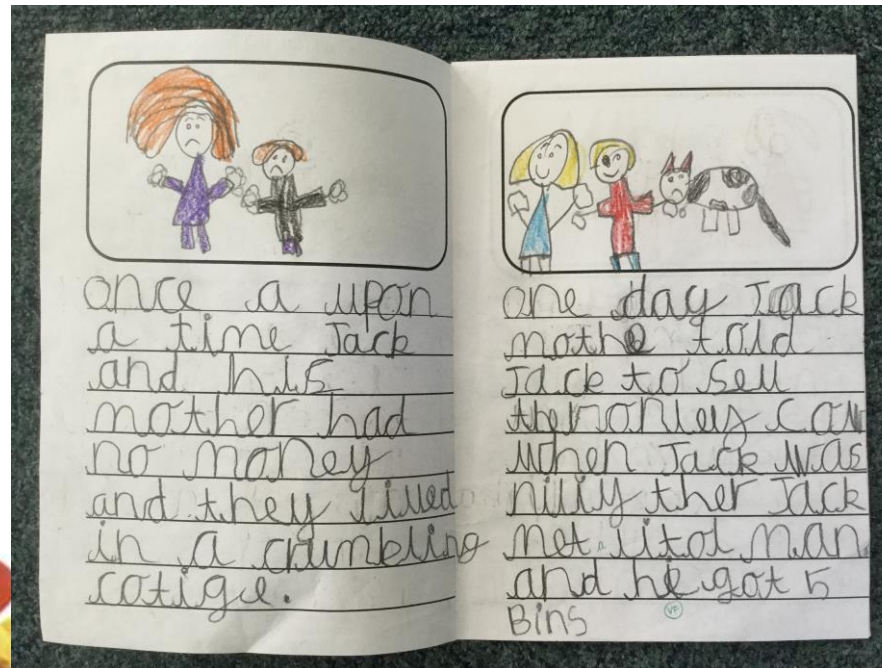 once a upon
a time Jack
and his
mother had
no money
and they lived
in a crumbling
cotige.
one day Jack
mothe told
Jack to sell
ther onley cow
when Jack was
nilly ther Jack
met litol man
and he got 5
Bins
VF